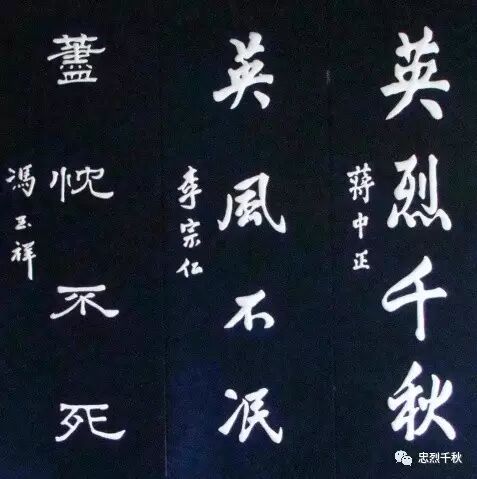 英烈千秋
蔣中正
英風不泯
李宗仁
藎忱不死
馮玉祥
忠烈千秋